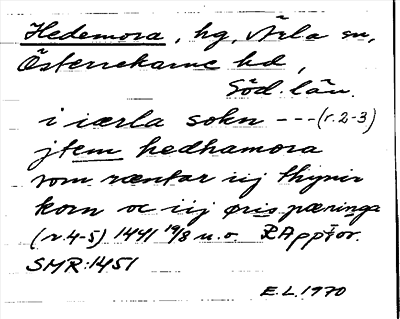 Hedemora, hg, Ärla sn,
Österrekarne hd,
Söd. län.
i iærla sokn --- (r. 2-3)
jtem hedhamora
som ræntar iij thynir
korn oc iij øris pæninga
(r. 4-5) 1441 19/8 u.o. RApp For.
SMR: 1451
E.L. 1970